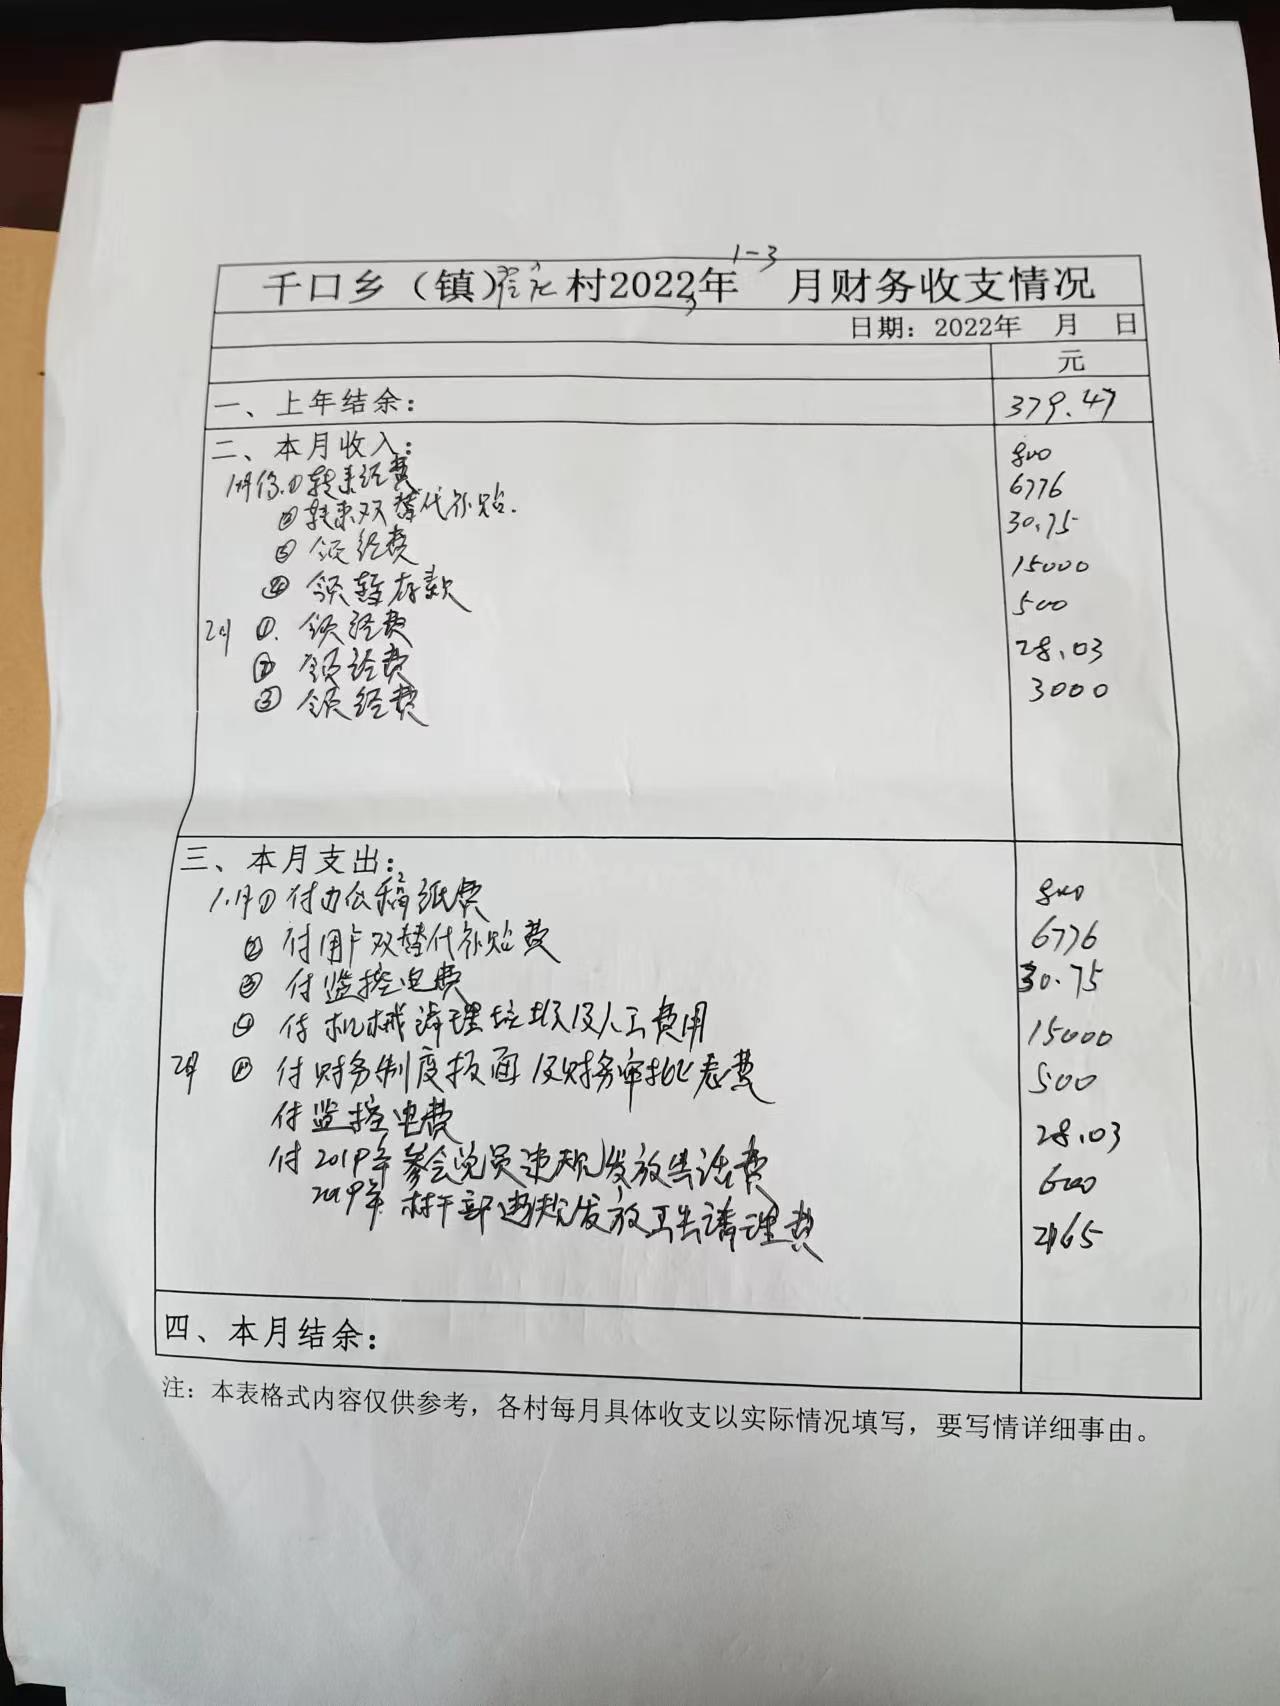 1-3
千口乡（镇） 村2022年 月财务收支情况
3
日期：2022年 月 日
元
一、上年结余： 379.47
二、本月收入：
1月份.①转来经费 800
②转来双替代补贴. 6776
③领经费 30.75
④领暂存款 15000
2月 ①.领经费 500
②领经费 28.03
③领经费 3000
三、本月支出：
1.月①付办公 纸费 800
②付用户双替代补贴费 6776
③付监控电费 30.75
④付机械清理垃圾及人工费用 15000
2月 ①付财务制度板面及财务审批表费 500
付监控电费 28.03
付2019年参会党员违规发放 话费 600
2019年村干部违规发放 清理费 2165
四、本月结余：
注：本表格式内容仅供参考，各村每月具体收支以实际情况填写，要写情详细事由。